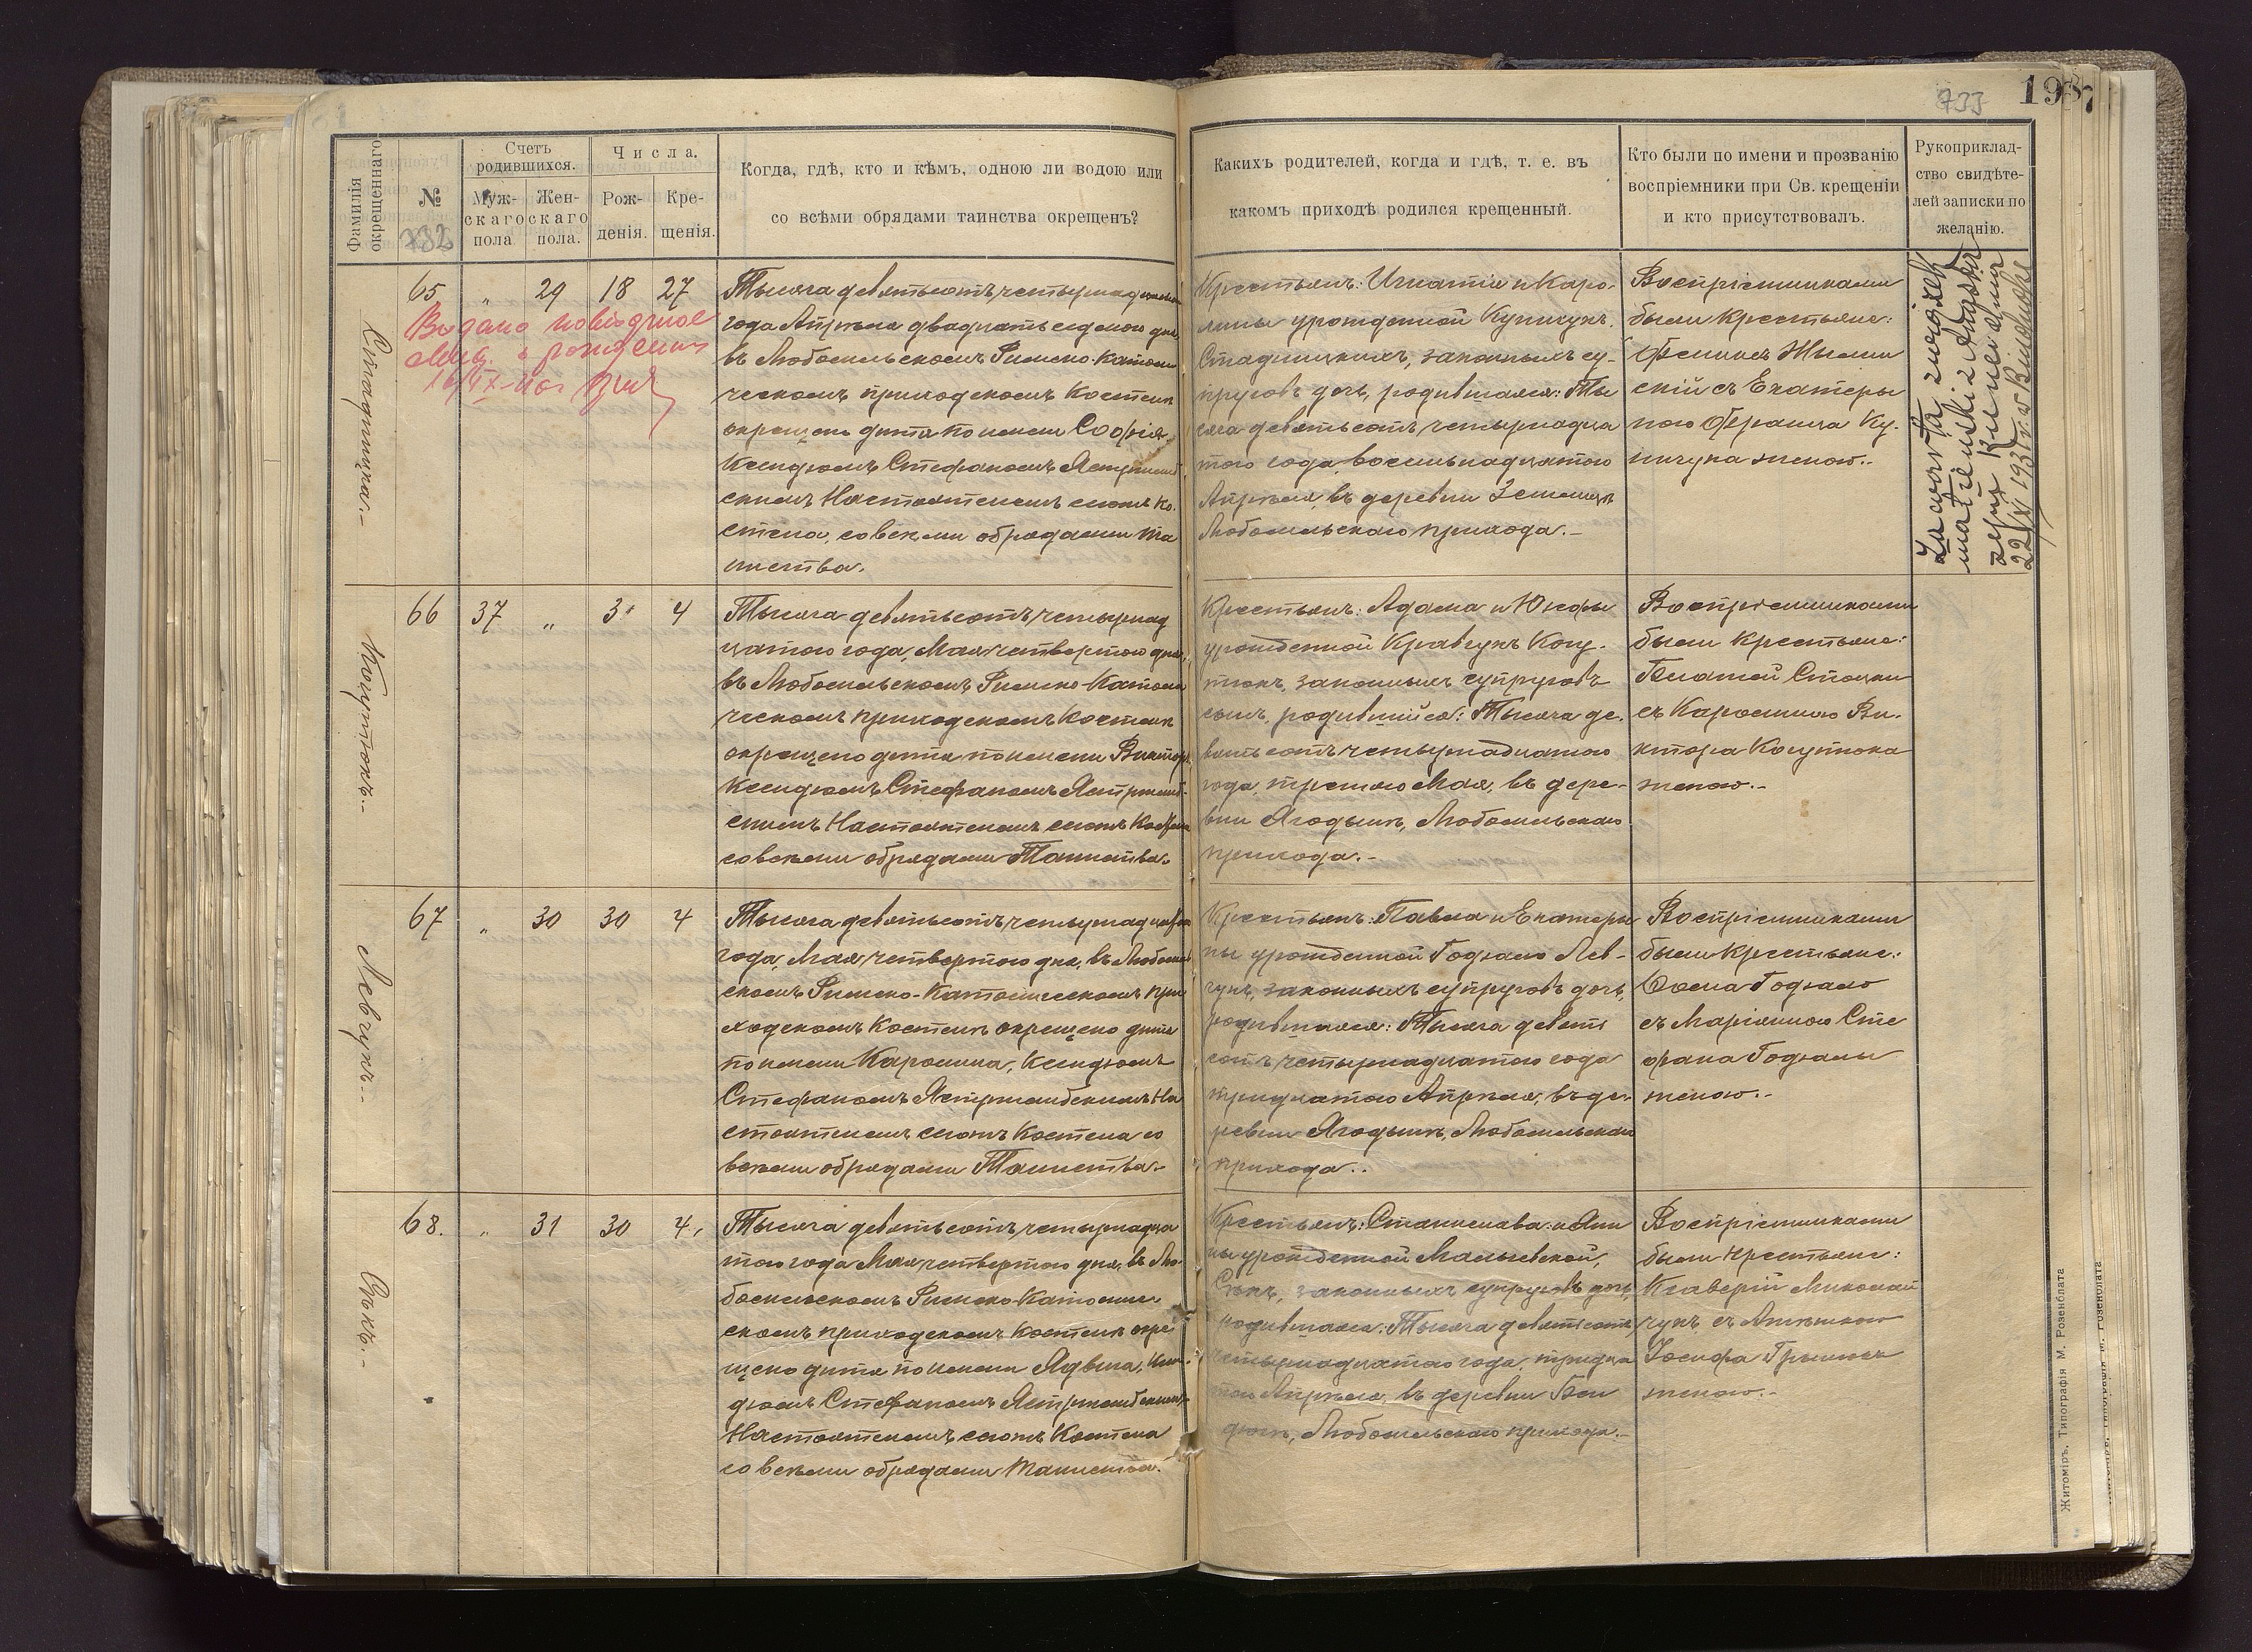 732
Фамилія окрещеннаго
№
Счетъ родившихся.
Муж-скаго пола
Жен-скаго пола.
Числа.
Рож-денія.
Кре-щенія.
Когда, гдѣ, кто и кѣмъ, одною ли водою или
со всѣми обрядами таинства окрещенъ?
65 „ 29 18 27
Тысяча девятьсотъ четырнадцатого
года Апрѣля двадцать седьмого дня
въ Любомльскомъ Римско-Католи
ческомъ приходскомъ Костелѣ
окрещено дитя по имени Софія,
Ксендзомъ Стефаномъ Ястржемб
скимъ Настоятелемъ сего же Ко-
стела, со всѣми обрядами Та
инства.
66 37 „ 3 4
Когутюкъ.-
Тысяча девятьсотъ четырнад
цатого года, Мая четвертого дня,
въ Любомльскомъ Римско-Католи
ческомъ приходскомъ Костелѣ
окрещено дитя по имени Викторъ
Ксендзомъ Стефаномъ Ястржемб-
скимъ Настоятелемъ сего же Костела
со всѣми обрядами Таинства.
67 „ 30 30 4
Левчукъ.-
Тысяча девятьсотъ четырнадцатого
года, Мая четвертого дня, въ Любомль
скомъ Римско-Католическомъ При
ходскомъ Костелѣ окрещено дитя
по имени Каролина, Ксендзомъ
Стефаномъ Ястржембскимъ На
стоятелемъ сего же Костела со
всѣми обрядами Таинства.-
68. „ 31 30 4,
Сѣкъ.-
Тысяча девятьсотъ четырнадца
того года Мая четвертого дня, въ Лю-
бомльскомъ Римско-Католиче
скомъ приходскомъ Костелѣ окре
щено дитя по имени Ядвига, Ксен-
дзомъ Стефаномъ Ястржембскимъ
Настоятелемъ сего же Костела
со всѣми обрядами Таинства.
733
1987
Какихъ родителей, когда и гдѣ, т. е. въ
какомъ приходѣ родился крещенный.
Кто были по имени и прозванію
воспріемники при Св. крещеніи
и кто присутствовалъ.
Рукоприклад-
ство свидѣте-
лей записки по
желанію.
Крестьянъ: Игнатія и Каро-
лины урожденной Кушчукъ,
законныхъ су-
пруговъ дочь, родившаяся: Ты
сяча девятьсотъ четырнадца
того года, восемьнадцатого
Апрѣля, въ деревни
Любомльского прихода.-
Воспріемниками
были Крестьяне:
скій съ Екатеры
ною
жена ю.-
Zawarła związek
małżeński z
22/XI 1937 r. w
Крестьянъ: Адама и Юзефы
урожденной Кравчукъ Когу-
тюкъ, законныхъ супруговъ
сынъ, родившійся: Тысяча де-
вятьсотъ четырнадцатого
года, третьего Мая, въ дере-
вни Ягодынъ, Любомльского
прихода.-
Воспріемниками
были Крестьяне:
съ Каролиною Ви-
ктора Когутюка
женою.-
Крестьянъ: Павла и Екатеры
ны урожденной Годзало Лев-
чукъ, законныхъ супруговъ дочь,
родившаяся: Тысяча девять
сотъ четырнадцатого года
тридцатого Апрѣля, въ де-
ревни Ягодынъ, Любомльского
прихода..
Воспріемниками
были Крестьяне:
Фома Годзало
съ Маріянною Сте
фана Годзалы
женою.-
Крестьянъ: Станислава и Ан
ны урожденной Малыевской,
Сѣкъ, законныхъ супруговъ дочь,
родившаяся: Тысяча девятьсотъ
четырнадцатого года, тридца
того Апрѣля, въ деревни Бен
дюгѣ, Любомльского прихода.-
Воспріемниками
были Крестьяне:
Ксаверій Миколай
чукъ съ
Іосифа
женою.-
Житоміръ. Типографія М. Розенблата